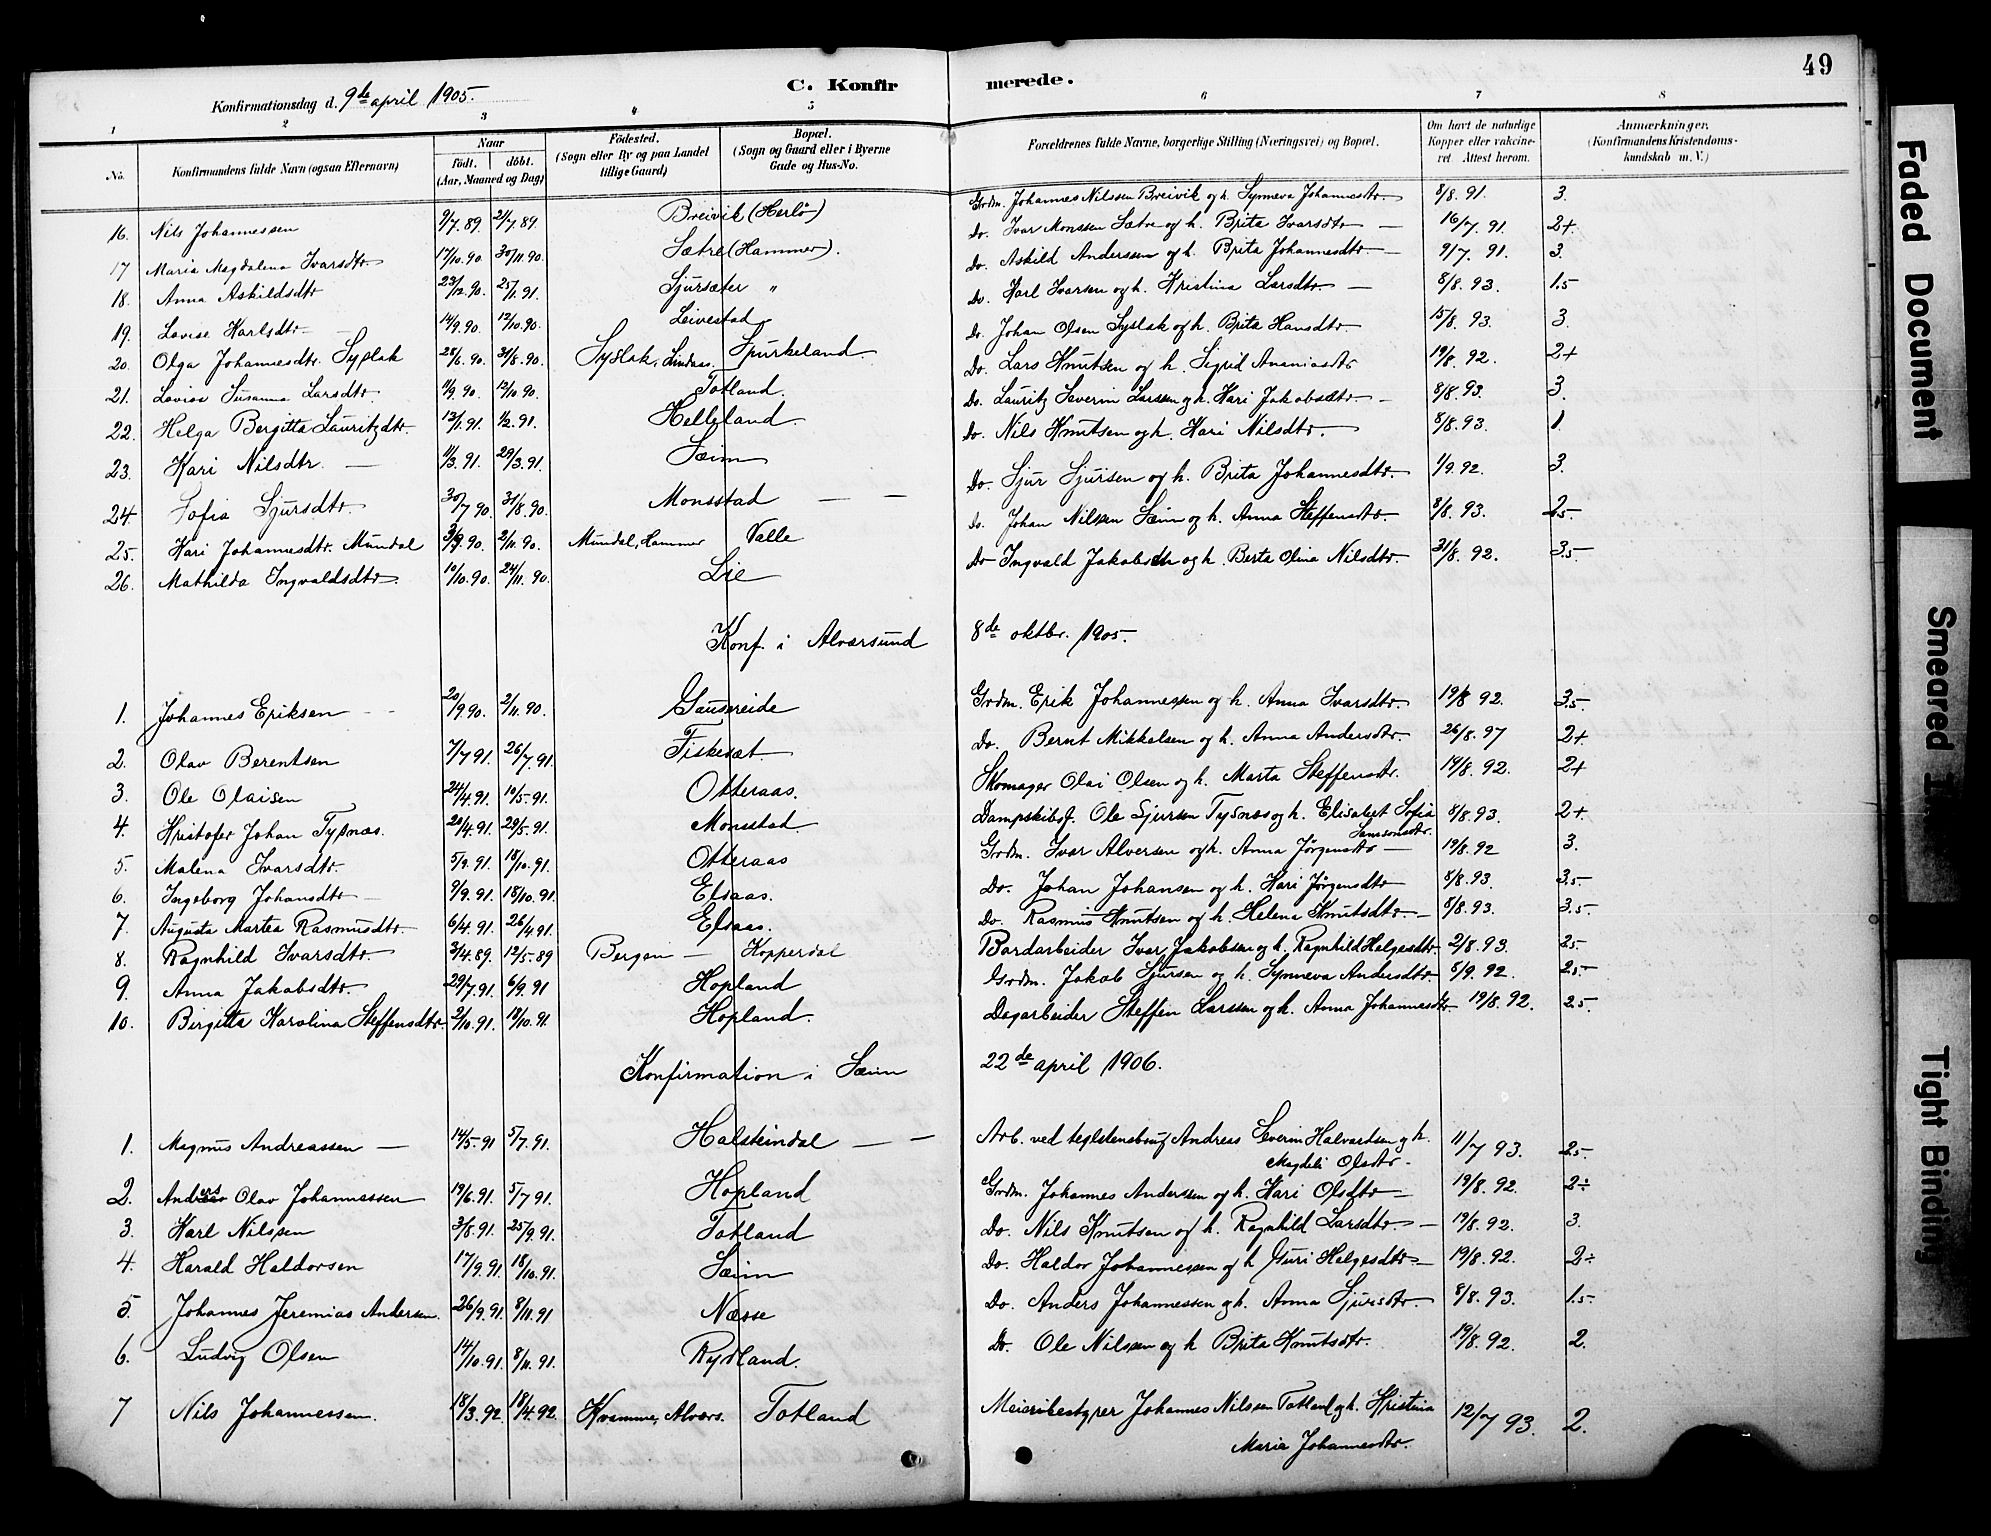 49
C. Konfirmerede.
Konfirmationsdag d. 9de april 1905.
1 2 3 4 5 6 7 8
No. Konfirmandens fulde Navn (ogsaa Efternavn) Naar födt. döbt. (Aar, Maaned og Dag) Födested. (Sogn eller By og paa Landet tillige Gaard) Bopæl. (Sogn og Gaard eller i Byerne Gade og Hus-No. Forældrenes fulde Navne, borgerlige Stilling (Næringsvei) og Bopæl. Om havt de naturlige Kopper eller vakcineret. Attest herom. Anmærkninger. (Konfirmandens Kristendomskundskab m. V.)
16. Nils Johannessen 9/7.89. 21/7.89. Breivik (Herlö) Grdm. Johannes Nilssen Breivik og h. Synneva Johannesdtr 8/8.91. 3.
17 Maria Magdalena Ivarsdtr. 17/10.90. 30/11.90. Sætre (Hammer). Do. Ivar Monssen Sætre og h. Brita Ivarsdtr — 16/7.91. 2+
18. Anna Askildsdtr 23/12.90. 25/1.91. Sjursæter " Do. Askild Anderssen og h. Brita Johannesdtr. — 9/7.91. 3.
19. Lovise Karlsdtr — 14/9.90. 12/10.90. Leivestad Do. Karl Ivarsen og h. Kristina Larsdtr. — 8/8.93. 1.5
20. Olga Johannesdtr. Syslak 28/6.90. 31/8.90. Syslak, Lindaas. Spurkeland Do. Johan Olsen Syslak og h. Brita Hansdtr 15/8.93. 3
21. Lovise Susanna Larsdtr. 11/9.90. 12/10.90. Totland. Do. Lars Knutsen og h. Sigrid Ananiasdtr 19/8.92. 2+
22. Helga Bergitta Lauritzdtr. 13/1.91. 1/2.91. Helleland. Do. Lauritz Severin Larssen og h. Kari Jakobsdtr. — 8/8.93. 3.
23. Kari Nilsdtr. — 11/3.91. 29/3.91. Sæim Do. Nils Knutsen og h. Kari Nilsdtr. 8/8.93. 1.
24 Sofia Sjursdtr 30/7.90. 31/8.90. Monsstad — — Do. Sjur Sjursen og h. Brita Johannesdtr. 1/9.92. 3.
25. Kari Johannesdtr. Mundal 2/11.90. Mundal, Hammer Valle Do. Johan Nilssen Sæim og h. Anna Steffensdtr. 8/8.93. 2.5.
26. Mathilda Ingvaldsdtr. 10/10.90. 24/11.90. Lie Do Ingvald Jakobsen og h. Berta Olina Nilsdtr. 31/8.92. 3.5
Konf. i Alversund 8de oktbr. 1905.
1. Johannes Eriksen — 20/9.90. 2/11.90. Gausereide Grdm. Erik Johannessen og h. Anna Ivarsdtr. 19/8 92. 3.5
2. Olav Berentsen 7/7 91. 26/7.91. Fiskesæt. Do. Bernt Mikkelsen og h. Anna Andersdtr. 26/8.97 2+
3. Ole Olaisen 24/4.91. 10/5.91. Otteraas. Skomager Olai Olsen og h. Marta Steffensdtr. 19/8.92. 2+
4. Kristofer Johan Tysnæs. 20/4.91. 29/5.91. Monsstad. Dampskibsf. Ole Sjursen Tysnæs og h. Elisabet Sofia Samsonsdtr. 8/8.93. 2+
5. Malena Ivarsdtr. 5/9.91. 18/10.91. Otteraas Grdm. Ivar Alversen og h. Anna Jörgensdtr — 19/8.92 3.
6. Ingeborg Johansdtr — 9/9.91. 18/10.91. Elsaas. Do. Johan Johansen og h. Kari Jörgensdtr 8/8.93. 3.5
7. Augusta Martea Rasmusdtr. 6/4.91. 26/4 91. Elsaas. Do. Rasmus Knutsen og h. Helena Knutsdtr. — 8/8.93. 3.5.
8. Ragnhild Ivarsdtr. 3/4.89. 12/5.89 Bergen — Kopperdal Bordarbeider Ivar Jakobsen og h. Ragnhild Helgesdtr. 2/8.93. 2.5
9. Anna Jakobsdtr. 29/7.91. 6/9.91 Hopland Grdm. Jakob Sjursen og h. Synneva Andersdtr. 8/9.92. 2.5
10. Birgitta Karolina Steffensdtr. 2/10.91. 18/10.91. Hopland. Dagarbeider Steffen Larssen og h. Anna Johannesdtr. 19/8.92. 2.5
Konfirmation i Sæim 22de april 1906.
1. Magnus Andreassen — 14/5.91 5/7.91. Halsteindal — — Arb. ved Andreas Severin Halvardsen og h. Magdeli Olsdtr. 11/7 93. 2.5
2. Anders Olav Johannessen 19/6.91. 5/7 91. Hopland Grdm. Johannes Anderssen og h. Kari Olsdtr — 19/8.92. 2÷
3. Karl Nilssen 3/8.91. 25/9.91. Totland Do. Nils Knutsen og h. Ragnhild Larsdtr. — 19/8.92. 3.
4. Harald Haldorsen 17/9.91. 18/10.91. Sæim Do. Haldor Johannessen og h Guri Helgesdtr. 19/8.92. 2÷
5. Johannes Jeremias Andersen. 26/9.91. 8/11.91 Næsse Do. Anders Johannessen og h. Anna Sjursdtr. 8/8.93. 1.5
6. Ludvig Olsen 14/10.91. 8/11.91. Rydland. Do. Ole Nilssen og h Brita Knutsdtr. 19/8.92. 2.
7 Nils Johannessen. 18/3.92. 18/4.92. Kvamme, Alvers. Totland Meieribestyrer Johannes Nilssen Totland og h. Kristina Maria Johannesdtr. 12/7 93. 2.
Faded Document
Smeared
Tight Binding